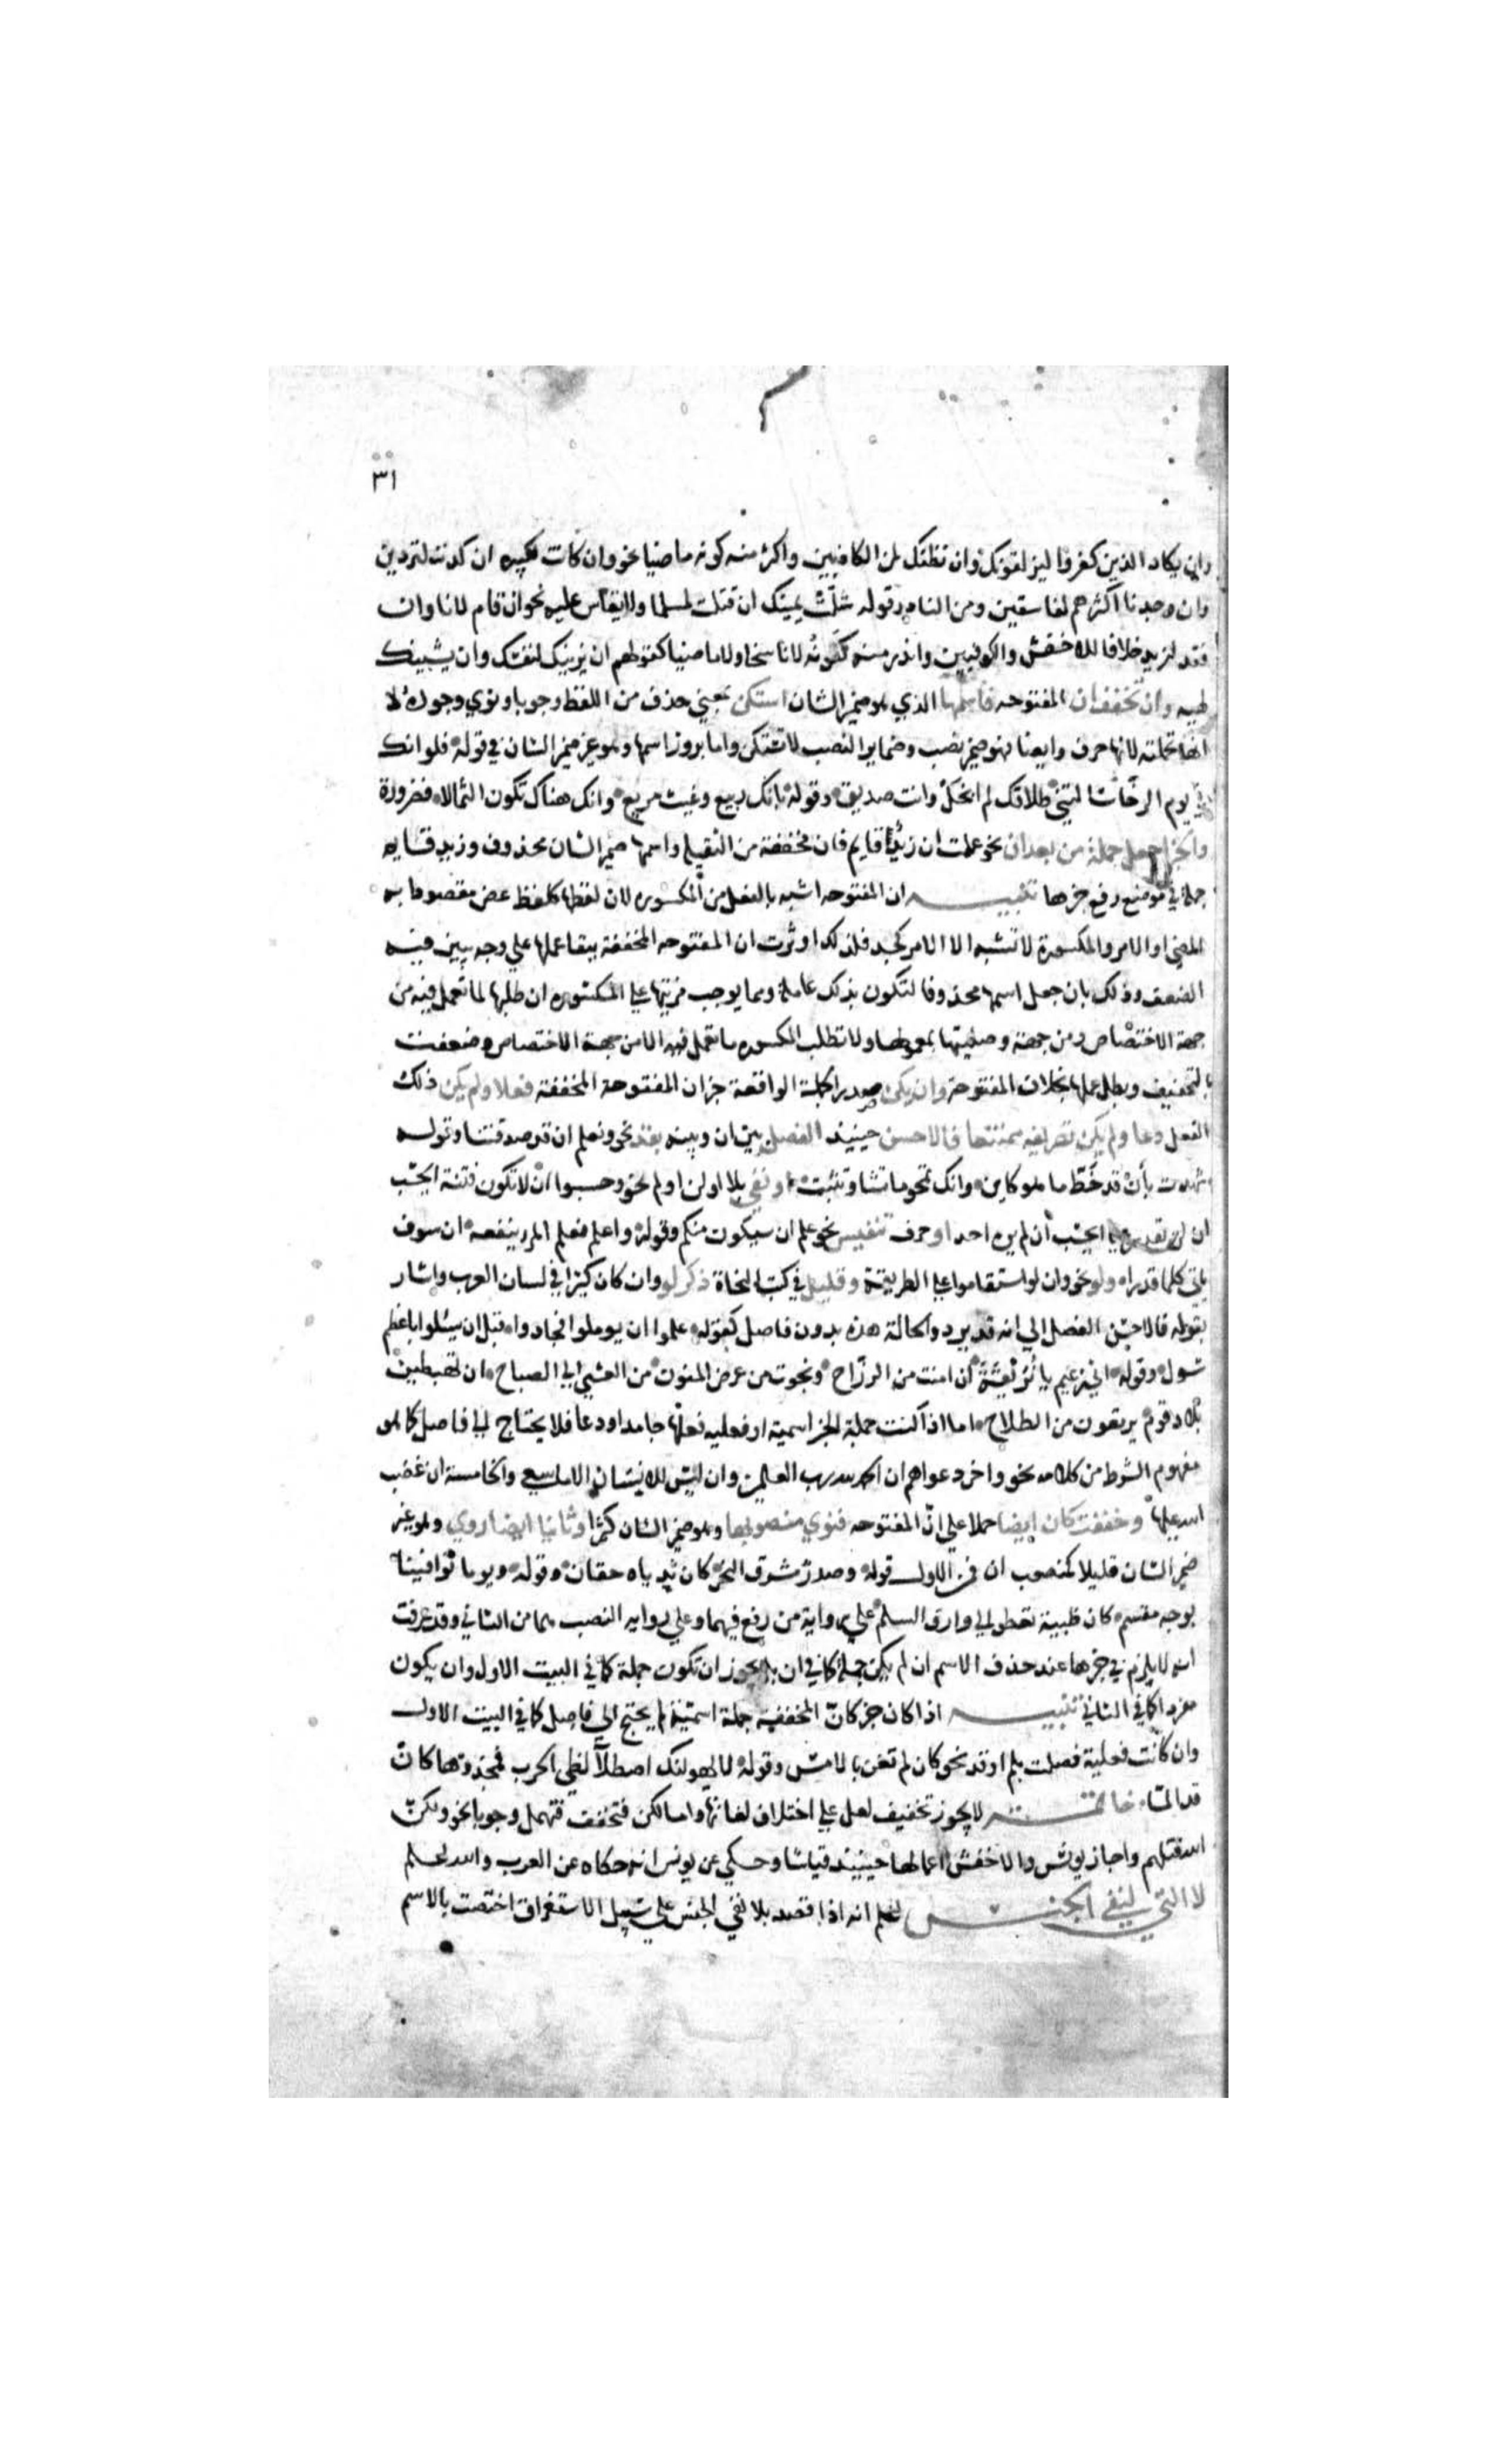 ٣١
وان يكاد الذين كفروا ليزلقونك وان نظنك لمن الكاذبين واكثر منه كونه ماضيا نحو وان كانت لكبيره ان كدت لتردين
وان وجدنا اكثرهم لفاسقين ومن النادر قوله شلّت يمينك ان قتلت لمسلما ولا يقاس عليه نحو ان قام لانا وان
قعد لزيد خلافا للاخفش والكوفيين واندر منه كونه لا ناسخا ولا ماضيا كقولهم ان يزينك لنفسك وان يشينك
لهيه وان تخفف ان المفتوحه فاسمها الذي هو ضمير الشان استكن بمعني حذف من اللفظ وجوبا ونوي وجوده لا
انها تحملته لانها حرف وايضا فهو ضمير نصب وضماير النصب لا تستكن واما بروز اسمها وهو غير ضمير الشان في قوله فلو انك
في يوم الرخاء سالتني طلاقك لم ابخل وانت صديق وقوله بانك ربيع وغيث مريع وانك هناك تكون الثمالا فضرورة
والخبر اجعل جملة من بعد ان نحو علمت ان زيد قايم فان مخففة من الثقيله واسمها ضمير الشان محذوف وزيد قايم
جملة في موضع رفع خبرها تنبيه ان المفتوحه اشبه بالفعل من المكسوره لان لفظها كلفظ عض مقصودا به
المضي او الامر والمكسورة لا تشبه الا الامر كجد فلذلك اوثرت ان المفتوحه المخففة ببقا عملها علي وجه يبين فيه
الضعف وذلك بان جعل اسمها محذوفا لتكون بذلك عاملة ومما يوجب مزيتها علي المكسوره ان طلبها لما تعمل فيه من
جهة الاختصاص ومن جهة وصليتها بمعمولها ولا تطلب المكسوره ما تعمل فيه الا من جهة الاختصاص فضعفت
بالتخفيف وبطل عملها بخلاف المفتوحة وان يكن صدر الجملة الواقعة خبر ان المفتوحة المخففة فعلا ولم يكن ذلك
الفعل دعا ولم يكن تصريفه ممتنعا فالاحسن حينيذ الفصل بين ان وبينه بقد نحو ونعلم ان قد صدقتنا وقوله
شهدت بأن قد خطّ ما هو كاين وانك تمحو ما تشا وتثبت او نفي بلا او لن او لم نحو وحسبوا ان لا تكون فتنة ايحسب
ان لن يقدر عليه ايحسب ان لم يره احد او حرف تنفيس نحو علم ان سيكون منكم وقوله واعلم فعلم المرء ينفعه ان سوف
ياتي كلما قدرا او لو نحو وان لو استقاموا علي الطريقة وقليل في كتب النحاة ذكر لو وان كان كثيرا في لسان العرب واشار
بقوله فالاحسن الفصل الي انه قد يرد والحالة هذه بدون فاصل كقوله علموا ان يوملون فجادوا قبل ان يسئلوا باعظم
سول وقوله اني زعيم يا نُوَيقة ان امنت من الرزاح ونجوت من عرض المنون من العشي الي الصباح ان تهبطين
بلاد قوم يرتعون من الطلاح اما اذا كنت جملة الخبر اسمية او فعليه فعلها جامد او دعا فلا يحتاج الي فاصل كما هو
مفهوم الشرط من كلامه نحو واخر دعواهم ان الحمد لله رب العالمين وان ليس للانسان الا ما سعي والخامسة ان غضب
الله عليها وخففت كان ايضا حملا علي انّ المفتوحه فنوي منصوبها وهو ضمير الشان كثيرا وثابتا ايضا روي وهو غير
ضمير الشان قليلا كمنصوب ان فمن الاول قوله وصدر مشرق النحر كان ثدياه حقان وقوله ويوما توافينا
بوجه مقسم كان ظبية تعطو الي وارق السلم علي رواية من رفع فيهما وعلي روايه النصب هما من الثاني وقد عرفت
انه لا يلزم في خبرها عند حذف الاسم ان لم يكن جملة كما في ان بل يجوز ان تكون جملة كما في البيت الاول وان يكون
مفردا كما في الثاني تنبيه اذا كان خبر كان المخففة جملة اسمية لم يحتج الي فاصل كما في البيت الاول
وان كانت فعلية فصلت بلم او قد نحو كان لم تغن بالامس وقوله لا يهولنك اصطلاء لظي الحرب فمحذورها كان
قد المّا خاتمة لا يجوز تخفيف لعل علي اختلاف لغاتها واما لكن فتخفف فتهمل وجوبا نحو ولكن
الله قتلهم واجاز يونس والاخفش اعمالها حينيذ قياسا وحكي عن يونس انه حكاه عن العرب والله اعلم
لا التي لنفي الجنس اعلم انه اذا قصد بلا نفي الجنس علي سبيل الاستغراق اختصت بالاسم